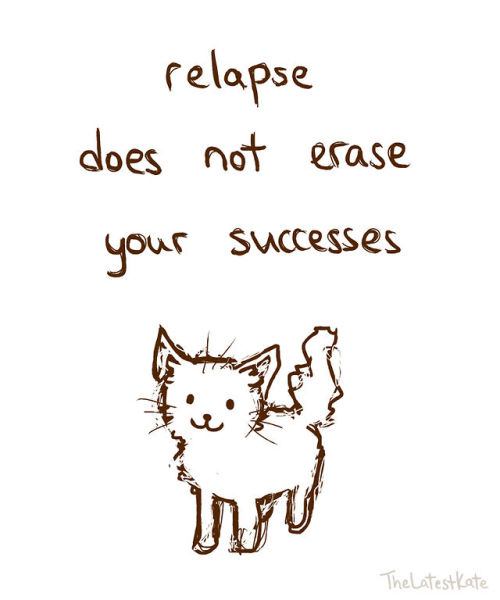 relapse
does not erase
your successes
TheLatestKate